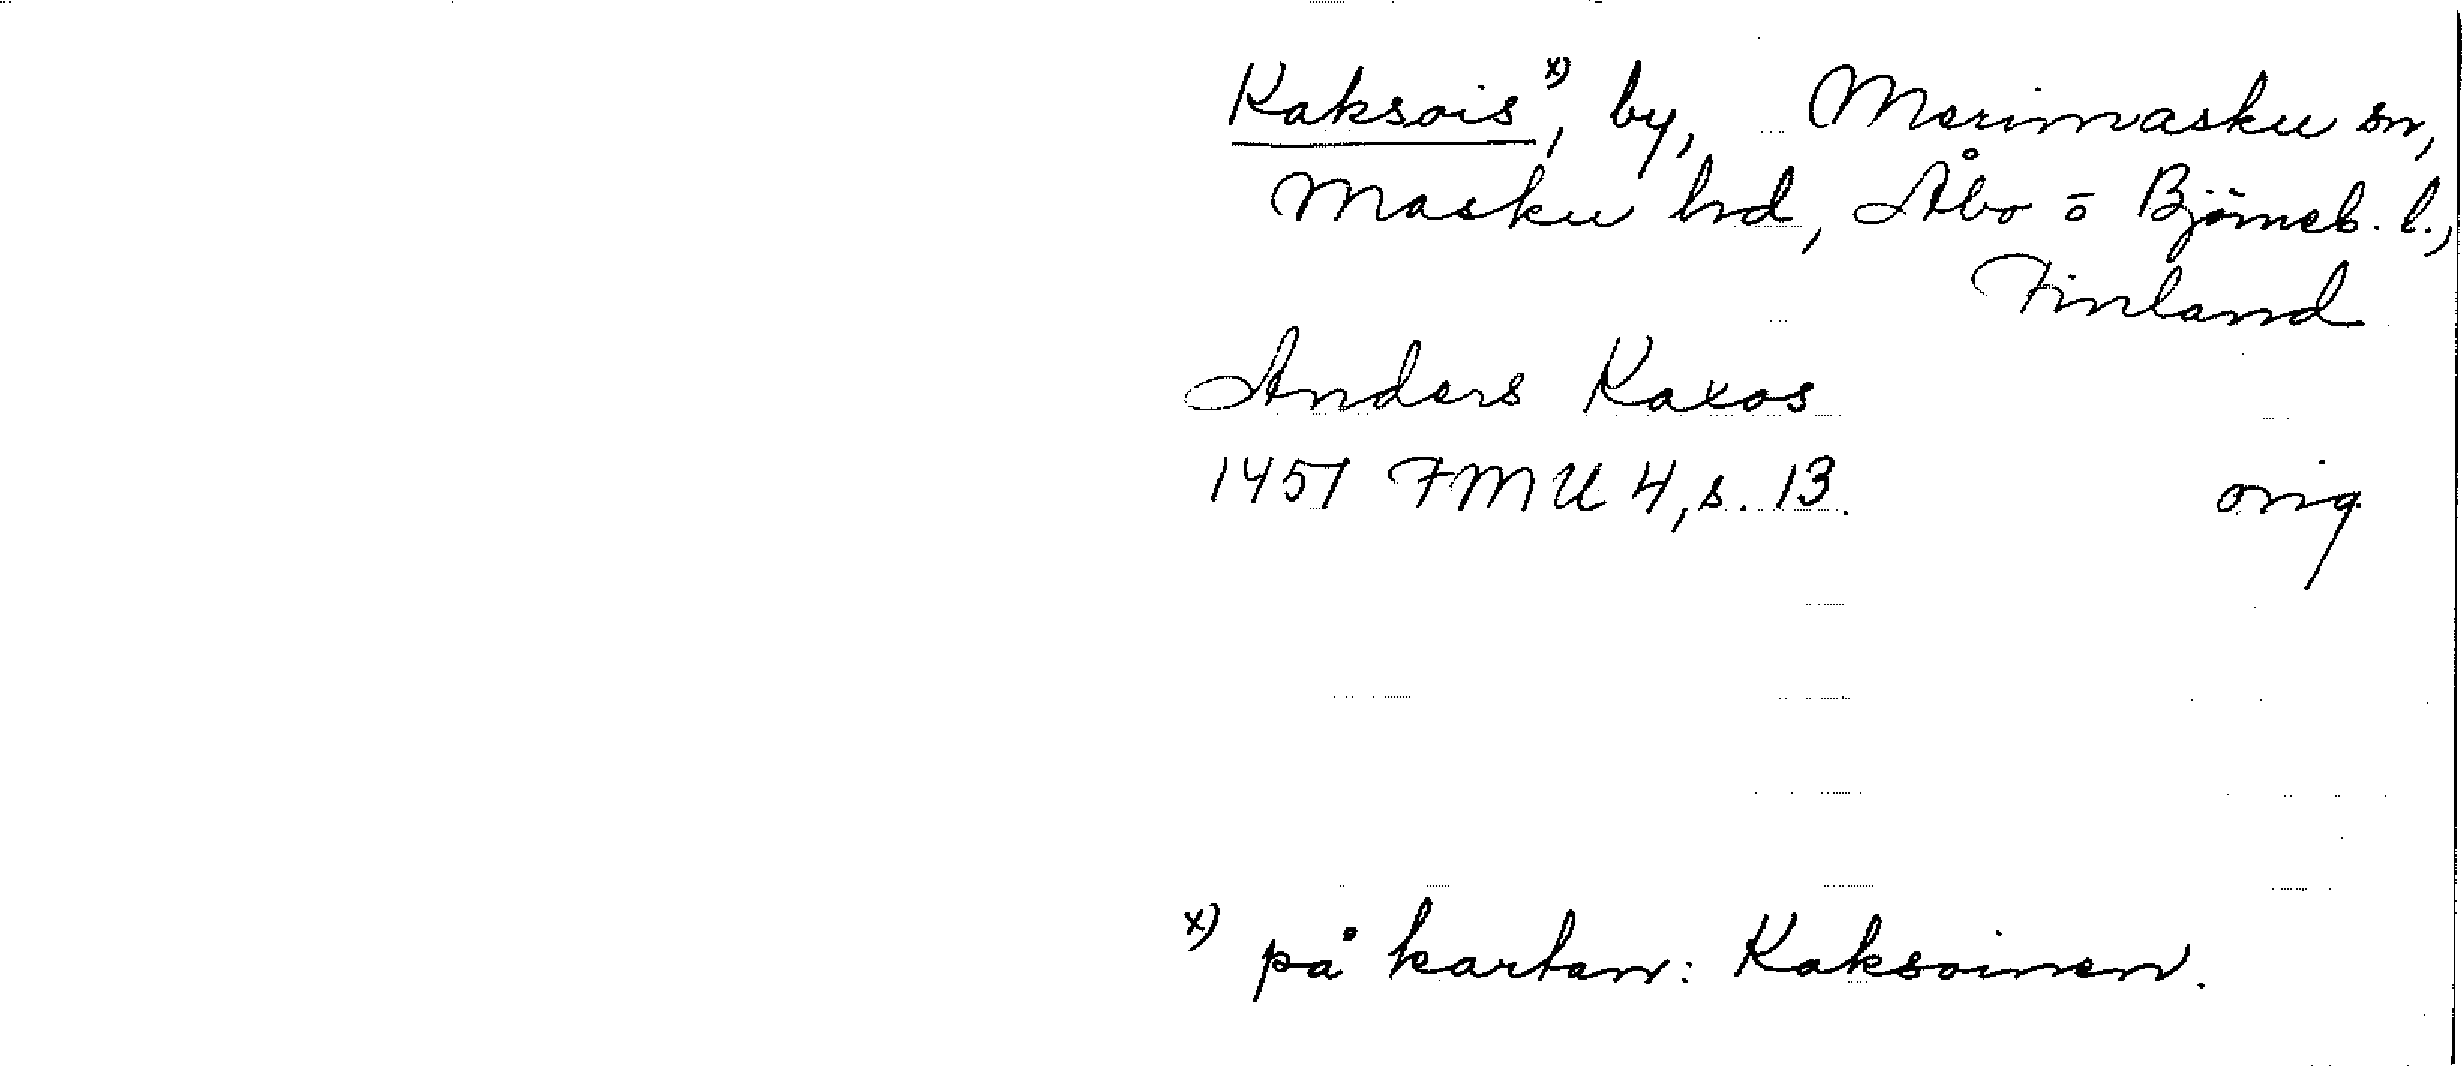 Kaksois x), by, Merimasku sn,
Masku hd, Åbo o Björneb. l.,
Finland
Anders Kaxos
1451 FMU 4, s. 13. orig
x) på kartan: Kaksoinen.